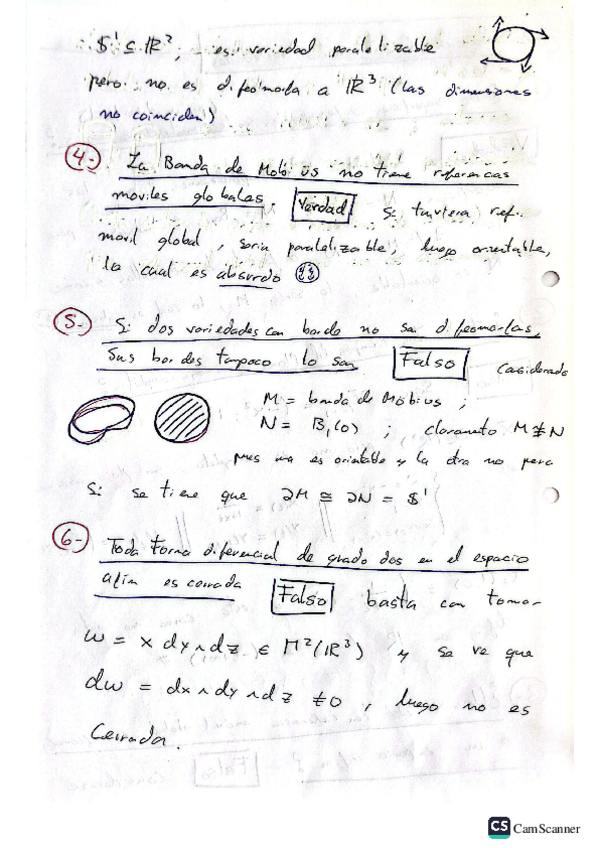 $¹ ⊆ ℝ², es variedad paralelizable
pero no es difeomorfa a ℝ³ (las dimensiones
no coinciden)
4.- La Banda de Möbius no tiene referencias
moviles globales. Verdad. Si tuviera ref.
movil global, seria paralelizable, luego orientable,
lo cual es absurdo
5.- Si dos variedades con borde no son difeomorfas,
sus bordes tampoco lo son Falso Considerado
M = banda de Möbius ;
N = B₁(0) ; claramente M ≇ N
pues una es orientable y la otra no pero
Si se tiene que ∂M ≅ ∂N = $¹
6.- Toda forma diferencial de grado dos en el espacio
afín es cerrada Falso basta con tomar
w = x dy ∧ dz ∈ M²(ℝ³) y se ve que
dw = dx ∧ dy ∧ dz ≠ 0 , luego no es
Cerrada.
CS CamScanner